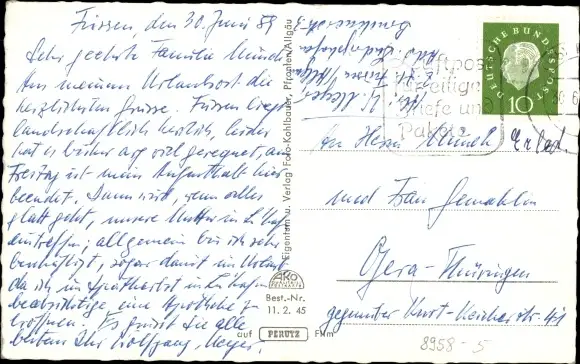 Füssen, den 30. Juni 59
Sehr geehrte Familie Münch
Aus meinem Urlaubsort die
herzlichsten Grüsse. Füssen liegt
landschaftlich herrlich, leider
hat es bisher arg viel geregnet, am
Freitag ist mein Aufenthalt hier
beendet. Dann wird, wenn alles
glatt geht, unsere Mutter in L'hafen
eintreffen; allgemein bin ich sehr
beschäftigt, sogar damit im Urlaub
da ich in L'hafen
beabsichtige eine Apotheke zu
eröffnen. Es grüsst Sie alle
bestens Ihr Wolfgang Meyer
Eigentum u. Verlag Foto-Kohlbauer, Pfronten/Allgäu
AKO
Best.-Nr.
11. 2. 45
auf PERUTZ Film
W. Meyer
Füssen
DEUTSCHE BUNDESPOST
10
Luftpost
für eilige
Briefe und
Pakete
An Herrn Münch
und Frau Gemahlin
Gera-Thüringen
gegenüber Kurt-Keicher-str 41
8958-5